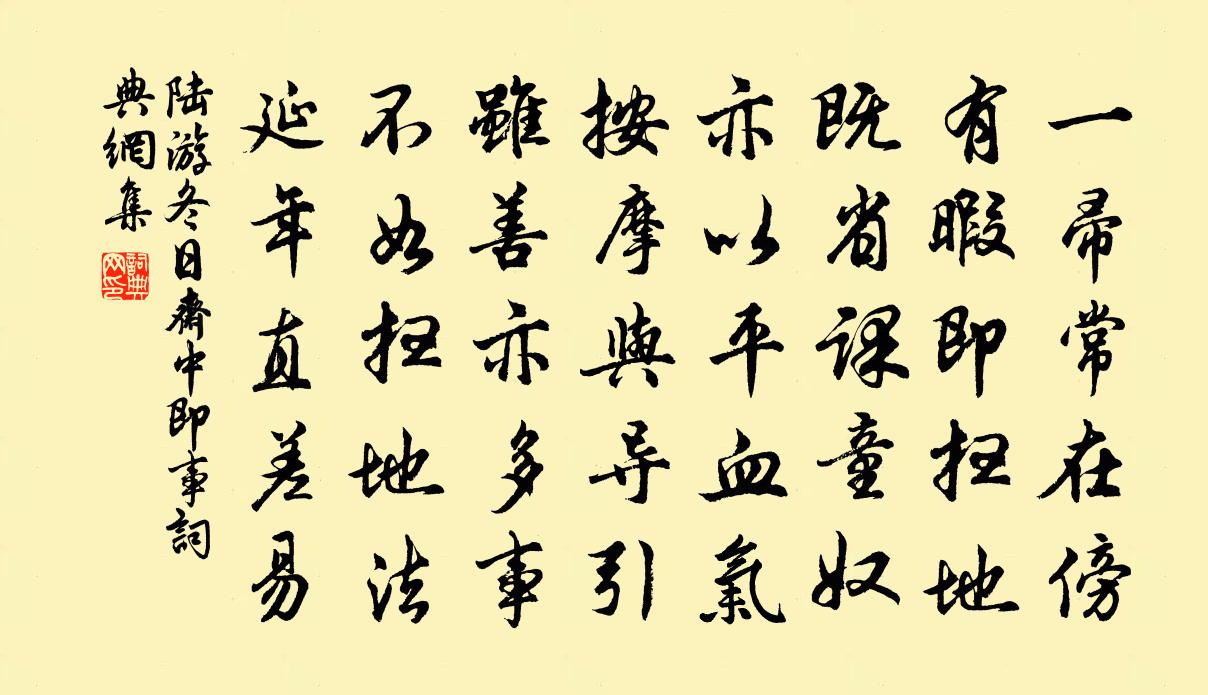 一帚常在傍
有暇即扫地
既省课童奴
亦以平血氣
按摩與导引
雖善亦多事
不如扫地法
延年直差易
陆游冬日齋中即事詞
典網集
詞典
网印